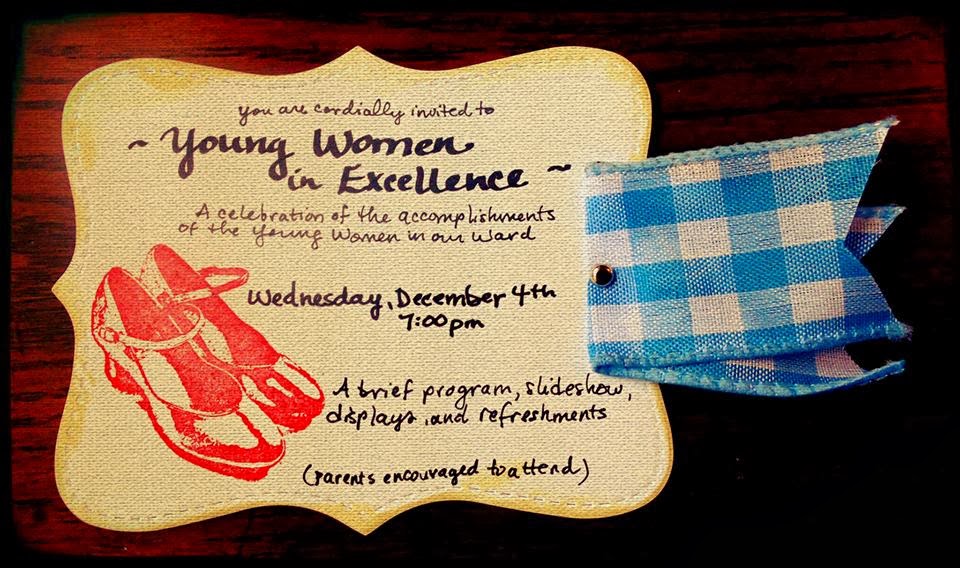 you are cordially invited to
~ Young Women
in Excellence ~
A celebration of the accomplishments
of the Young Women in our Ward
Wednesday, December 4th
7:00pm
A brief program, slideshow,
displays, and refreshments
(parents encouraged to attend)